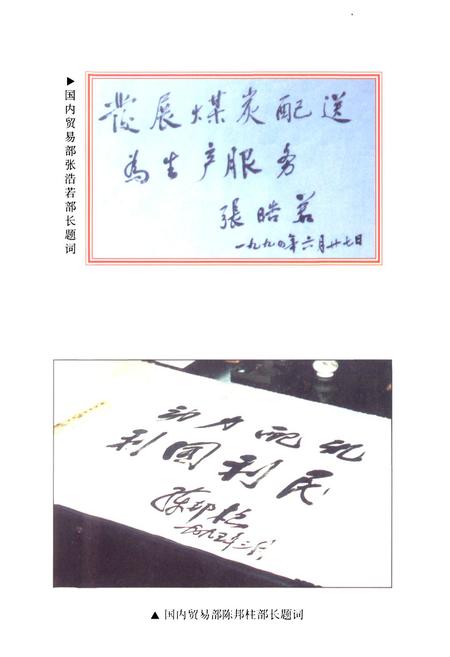 ▶国内贸易部张浩若部长题词
發展煤炭配送
為生产服务
張皓若
一九九四年六月廿七日
动力配煤
利国利民
陈邦柱
▲国内贸易部陈邦柱部长题词